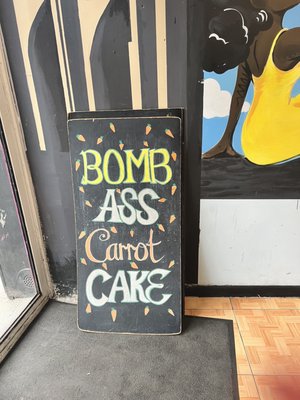 BOMB
ASS
Carrot
CAKE